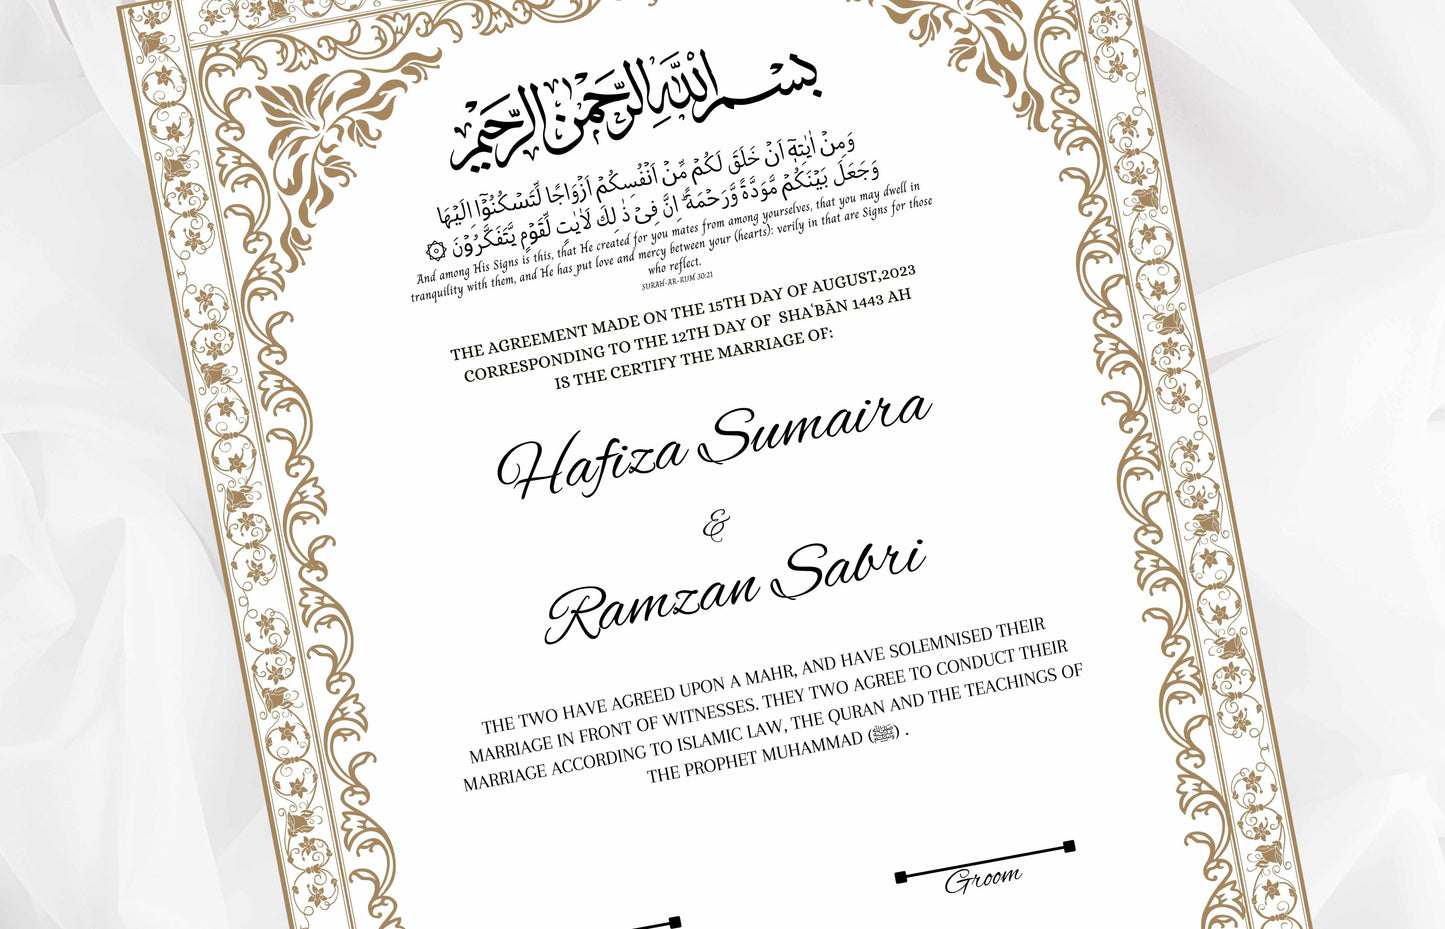 بِسْمِ اللَّهِ الرَّحْمٰنِ الرَّحِيْمِ
وَمِنْ اٰيٰتِهٖٓ اَنْ خَلَقَ لَكُمْ مِّنْ اَنْفُسِكُمْ اَزْوَاجًا لِّتَسْكُنُوْٓا اِلَيْهَا
وَجَعَلَ بَيْنَكُمْ مَّوَدَّةً وَّرَحْمَةً ؕ اِنَّ فِىْ ذٰ لِكَ لَاٰيٰتٍ لِّقَوْمٍ يَّتَفَكَّرُوْنَ ۞
And among His Signs is this, that He created for you mates from among yourselves, that you may dwell in
tranquility with them, and He has put love and mercy between your (hearts): verily in that are Signs for those
who reflect.
SURAH-AR-RUM 30:21
THE AGREEMENT MADE ON THE 15TH DAY OF AUGUST,2023
CORRESPONDING TO THE 12TH DAY OF SHAʿBĀN 1443 AH
IS THE CERTIFY THE MARRIAGE OF:
Hafiza Sumaira
&
Ramzan Sabri
THE TWO HAVE AGREED UPON A MAHR, AND HAVE SOLEMNISED THEIR
MARRIAGE IN FRONT OF WITNESSES. THEY TWO AGREE TO CONDUCT THEIR
MARRIAGE ACCORDING TO ISLAMIC LAW, THE QURAN AND THE TEACHINGS OF
THE PROPHET MUHAMMAD (ﷺ) .
Groom